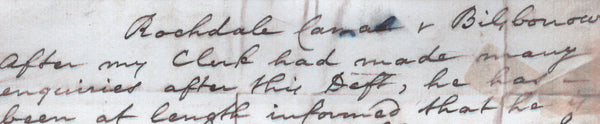 Rochdale Canal v Bilsborrow
After my Clerk had made many
enquiries after this Deft, he has
been at length informed that he is